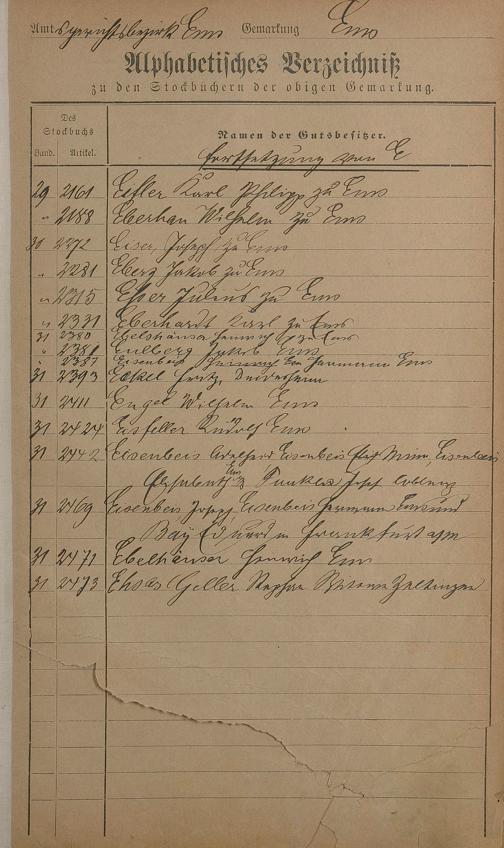 Amtsgerichtsbezirk Ems Gemarkung Ems
Alphabetisches Verzeichniß
zu den Stockbüchern der obigen Gemarkung.
Des
Stockbuchs
Band. Artikel.
Namen der Gutsbesitzer.
Fortsetzung von E
29 2161 Karl Philipp zu Ems
" 2188 Wilhelm zu Ems
30 2272 Eiser, Joseph zu Ems
" 2281 Jakob zu Ems
" 2315 Esser Julius zu Ems
" 2331 Eberhardt Karl zu Ems
31 2380 Ebelshäuser Heinrich zu Ems
" 2381 Eulberg Jakob Ems
" 2387 Hermann Ems
31 2393 Eckel Fritz,
31 2411 Engel Wilhelm Ems
31 2424 Eisfeller Rudolf Ems
31 2442 Eisenbeis Eisenbeis Eisenbeis
Elisabeth Josef Coblenz
31 2469 Eisenbeis Josef, Eisenbeis Hermann Ems und
in Frankfurt a/M
31 2471 Ebelhäuser Heinrich Ems
31 2473 Geller Stephan Zeltingen